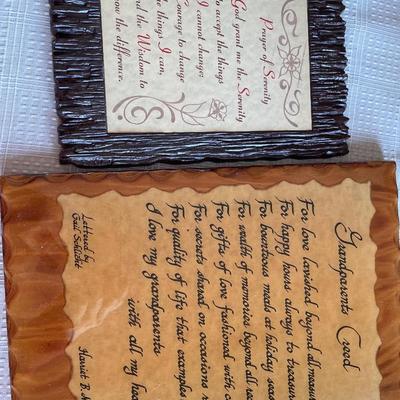 Prayer of Serenity
God grant me the Serenity
To accept the things
I cannot change:
Courage to change
the things I can,
And the Wisdom to
know the difference.
Grandparents Creed
For love lavished beyond all measure
For happy hours always to treasure
For bounteous meals at holiday
For wealth of memories beyond all
For gifts of love fashioned with
For secrets shared on occasions
For quality of life that examples
I love my grandparents
with all my
Lettered by
Gail Schlicht
Harriet B.